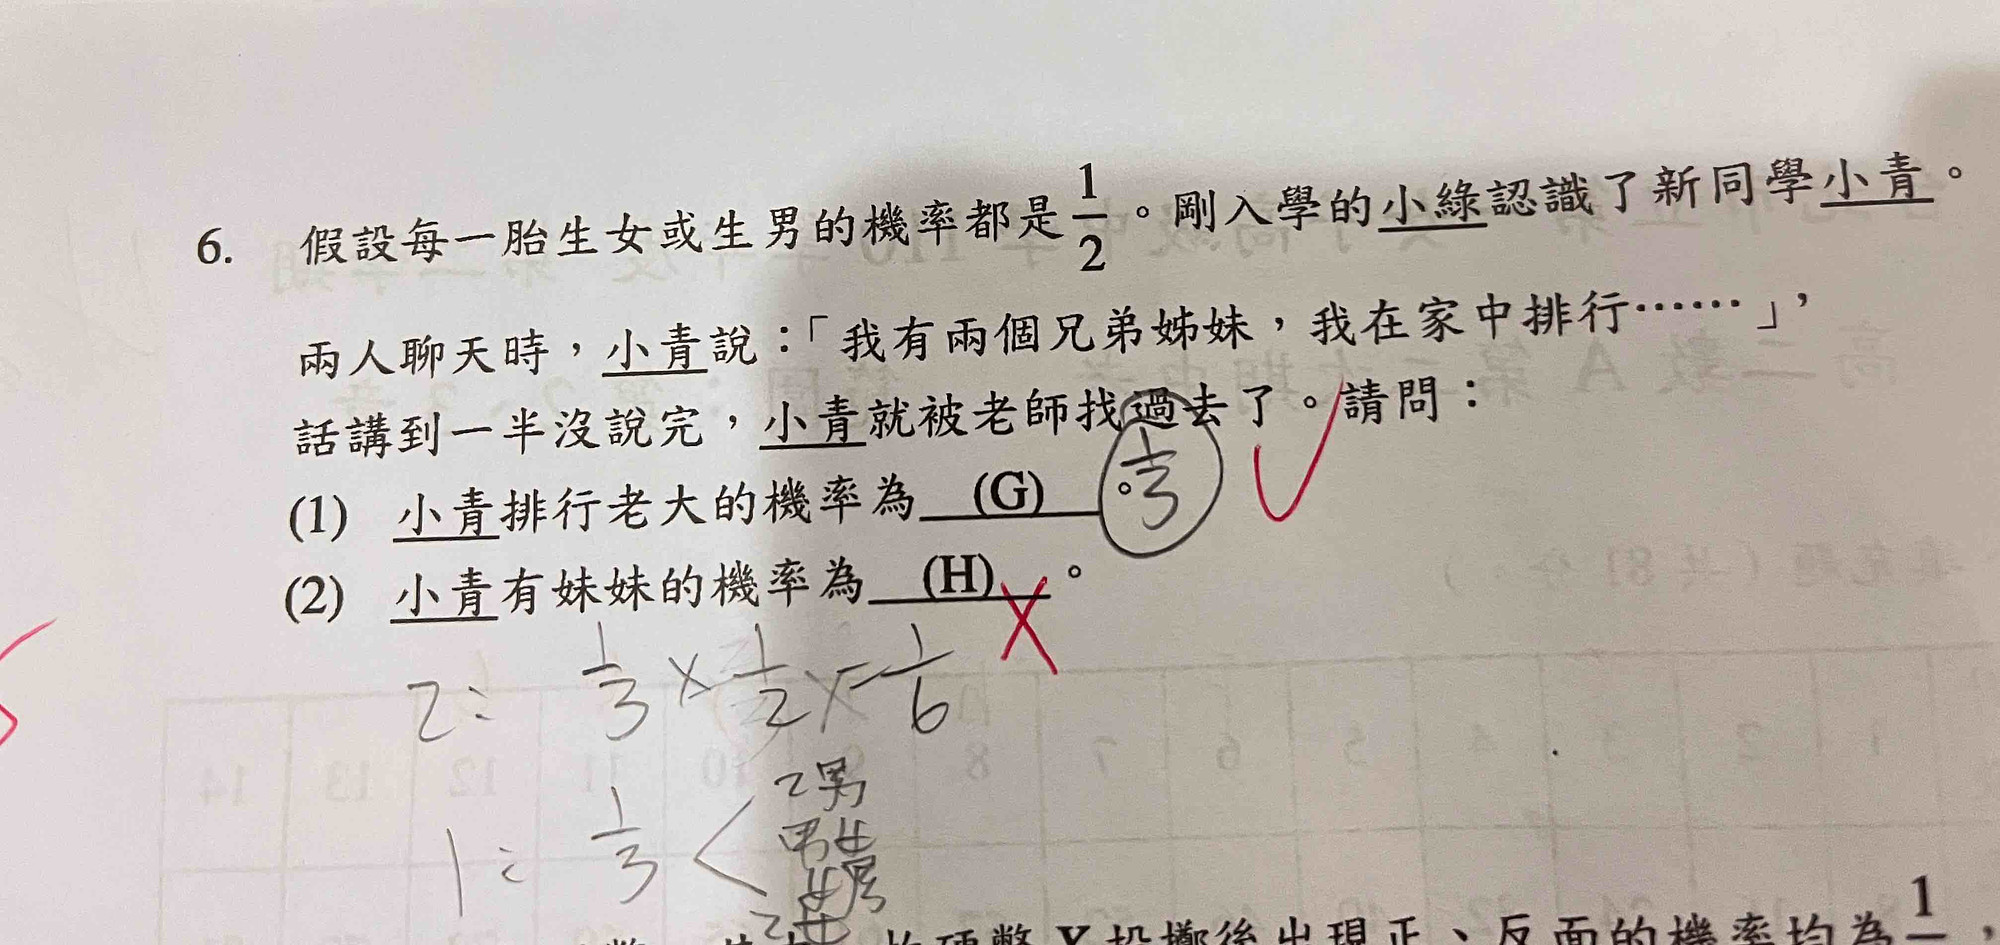 6. 假設每一胎生女或生男的機率都是1/2。剛入學的小綠認識了新同學小青。
兩人聊天時，小青說：「我有兩個兄弟姊妹，我在家中排行……」，
話講到一半沒說完，小青就被老師找過去了。請問：
(1) 小青排行老大的機率為 (G) 。 1/3
(2) 小青有妹妹的機率為 (H) 。
2: 1/3 × 1/2 × = 1/6
1: 1/3 < 2男
男女
女男
2女
硬幣 Y 投擲後出現正、反面的機率均為 1